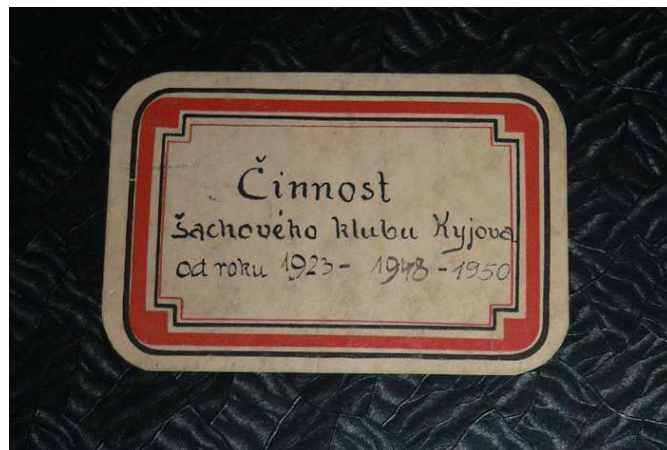 Činnost
šachového klubu Kyjova
od roku 1923 - 1948 - 1950